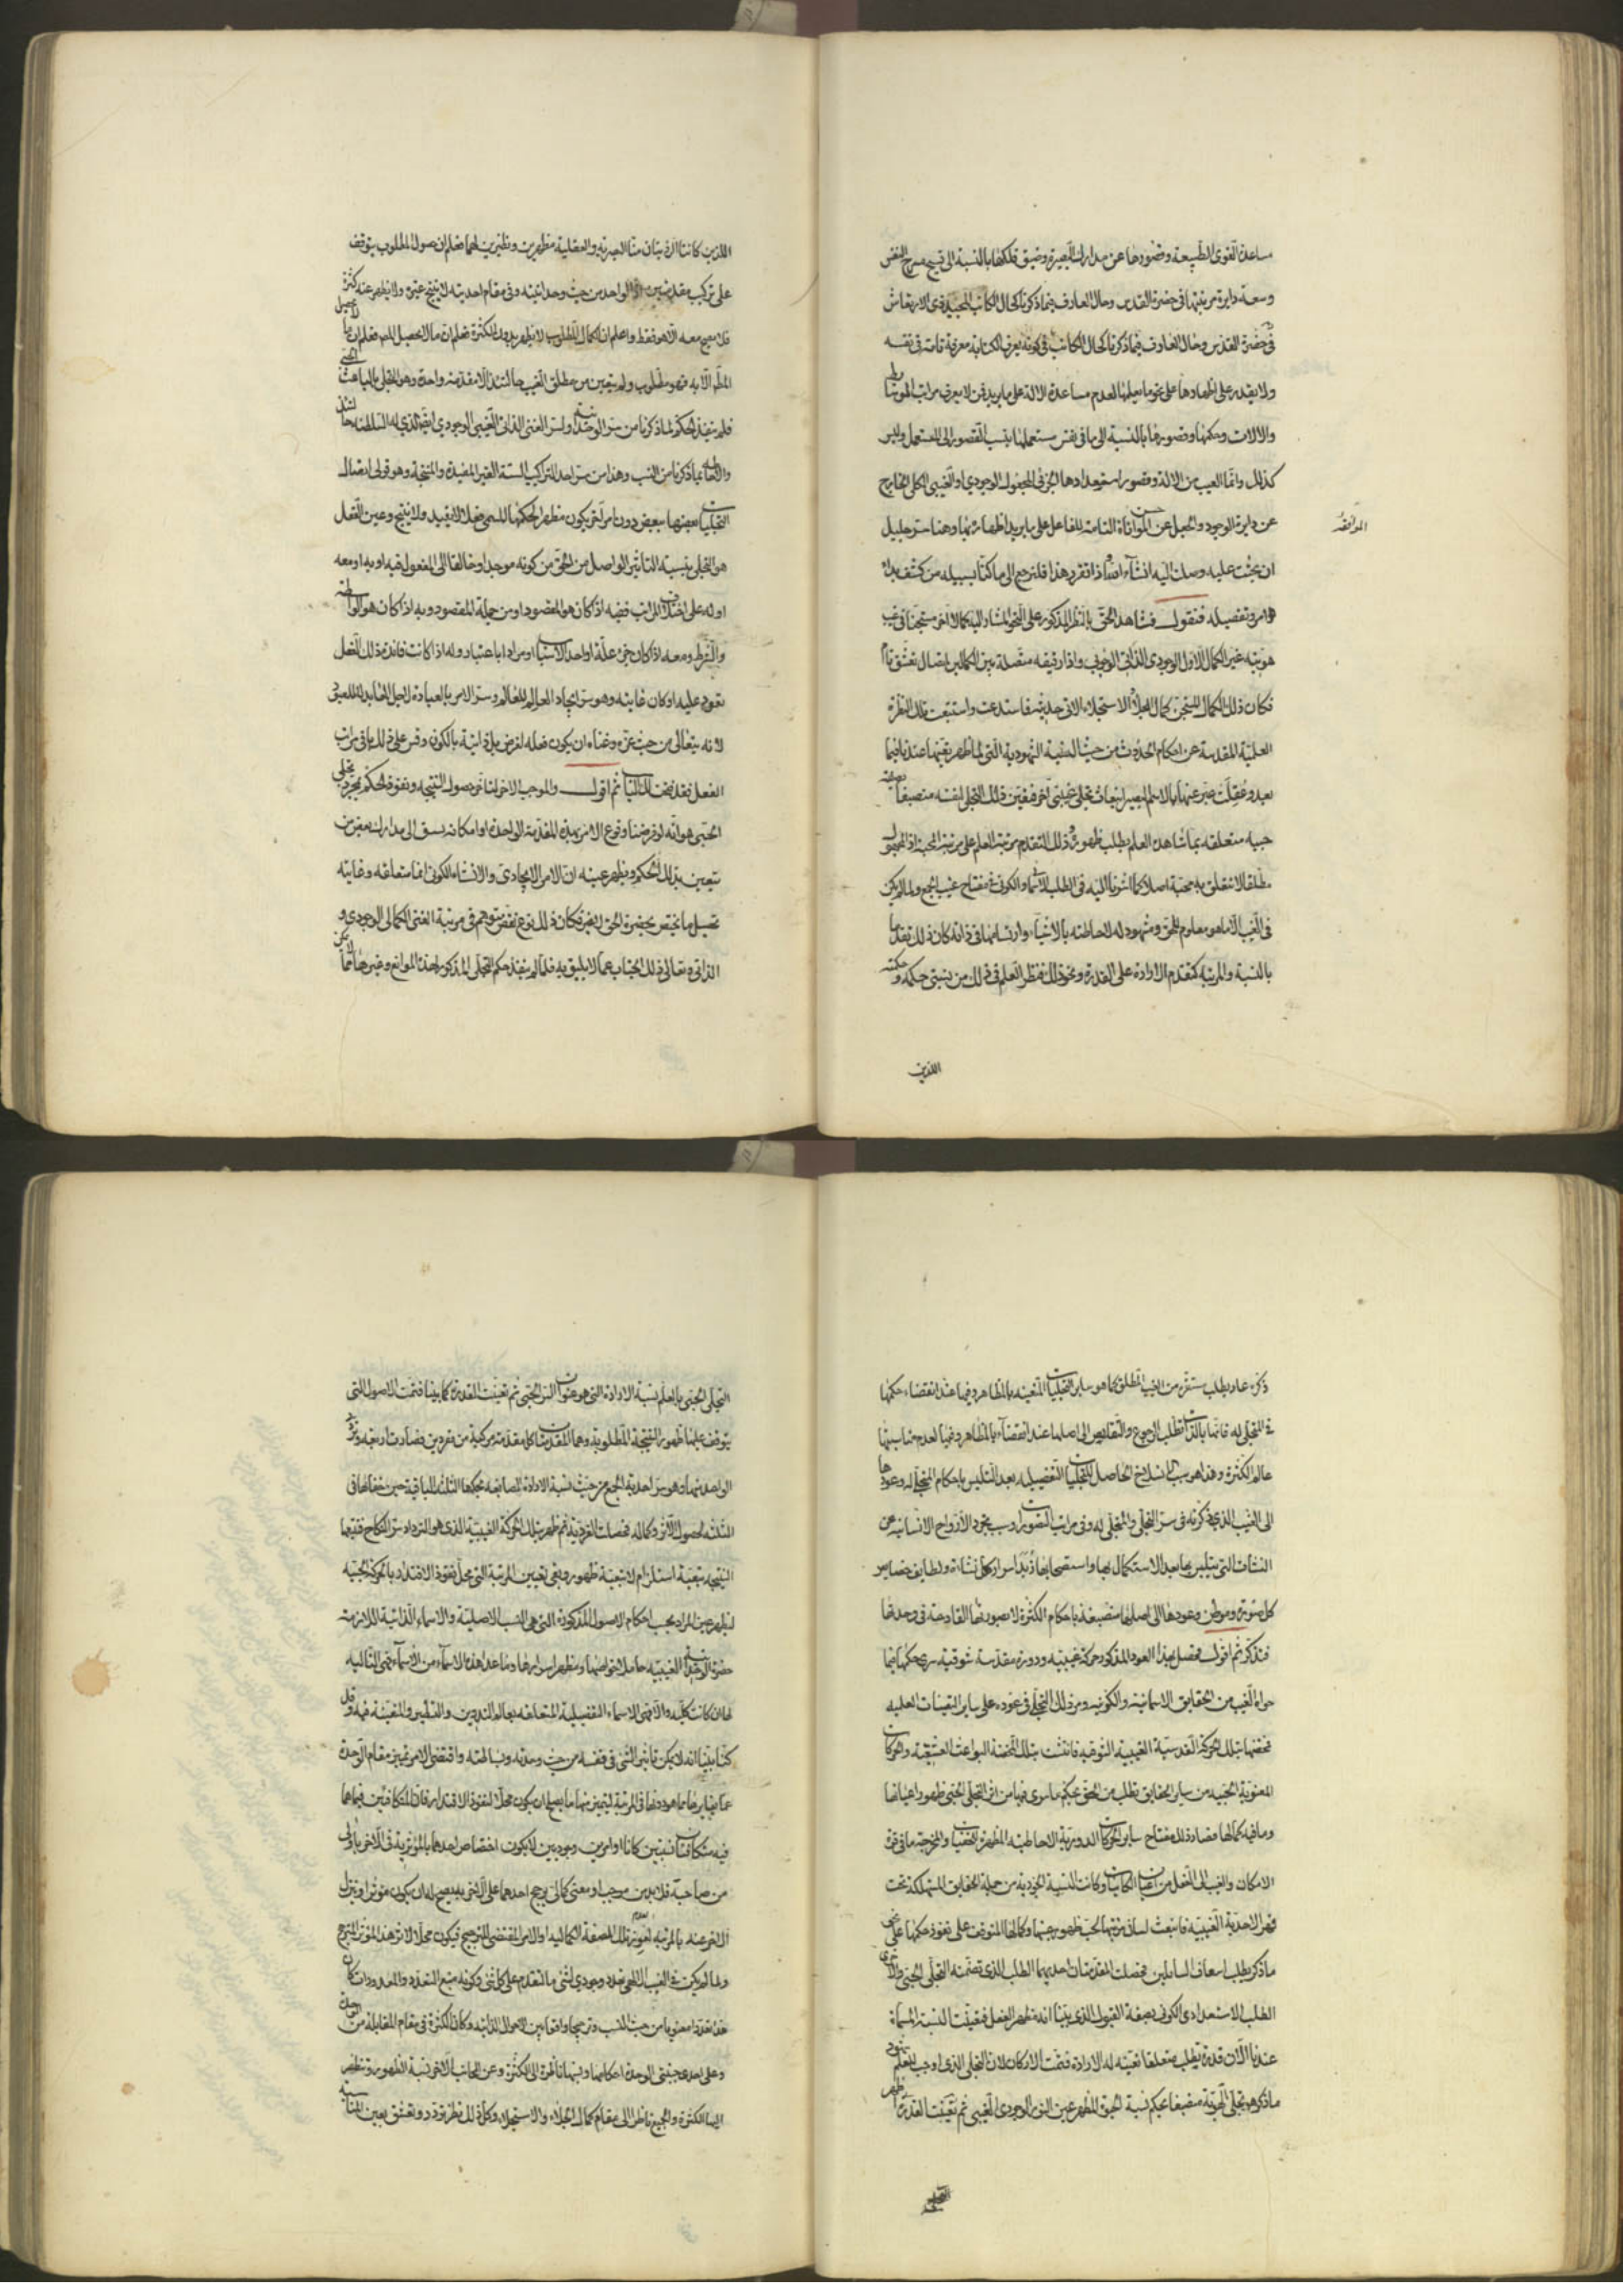 مساعدة القوى الطبيعة وقصورها عن مدارك البصيرة وضيق فلكها بالنسبة الى فسيح مسرح النفس
وسعة دايرة مرتبتها في حضرة القدس وحال العارف فيما ذكرنا كحال الكاتب المجيد ذى الارتعاش
في حضرة القدس وحال العارف فيما ذكرنا كحال الكاتب في كونه يعرف الكتابة معرفة تامة في نفسه
ولا يقدر على اظهارها على نحو ما يعلمها لعدم مساعدة الالة على ما يريد فمن لا يعرف مراتب الوسايط
والالات وحكمها وقصورها بالنسبة الى ما في نفس مستعملها ينسب القصور الى المستعمل وليس
كذلك وانما العيب من الالة وقصور استعدادها الجزئي المجعول الوجودي او الغيبي الكلي الخارج
عن دايرة الوجود والجعل عن حسن المواتاة التامة للفاعل على ما يريد اظهاره بها وهنا سر جليل
الموافقة
ان بحثت عليه وصلت اليه انشاء الله اذا تقرر هذا فلنرجع الى ما كنا بسبيله من كشف
الامر وتفصيله فنقول فشاهد الحق بالنظر المذكور على النحو المشار اليه كمالا اخر مستجنا في غيب
هويته غير الكمال الاول الوجودي الذاتي الوجوبي واذا رقيقة متصلة بين الكمالين اتصال تعشق تام
فكان ذلك الكمال المستجن كمال الجلاء والاستجلاء الاتي حديثه فاستدعت واستتبعت تلك النظرة
العلمية المقدسة عن احكام الحدوث من حيث النسبة الشهودية التي لما ظهر تعينها عندنا فيما
بعد وعقلت عبر عنها بالاسم البصير انبعاث تجلي غيبي اخر فتعين ذلك التجلي لنفسه منصبغا بصبغة
حبية متعلقة بما شاهده العلم يطلب ظهوره وذلك لتقدم مرتبة العلم على مرتبة المحبة اذ المجهول
مطلقا لا تتعلق به محبة اصلا كما اشرنا اليه في الطلب الاسمائي والكوني في مفتاح غيب الجمع ولما لم يكن
في الغيب الا ما هو معلوم للحق ومشهود له لاحاطته بالاشياء وارتسامها في ذاته كان ذلك تقدما
بالنسبة والمرتبة كتقدم الارادة على القدرة ونحو ذلك فنظر العلم في ذلك من حيثي حكمه وحكمته
اللذين
اللذين كانتا الرقيقتان منا البصرية والعقلية مظهرين ونظيرين لهما فعلم ان حصول المطلوب يتوقف
على تركيب مقدمتين اذ الواحد من حيث وحدانيته وفي مقام احديته لا ينتج غيره ولا يظهر عنه كثرة
فلا يصح معه الا هو فقط واعلم ان الكمال المطلوب لا يظهر بدون الكثرة فعلم ان ما لا يحصل
المطلوب الا به فهو مطلوب ولم يتعين من مطلق الغيب حالتئذ الا مقدمة واحدة وهو التجلي بالباعث الحبي
فلم ينفذ الحكم لما ذكرنا من سر الوحدانية ولسر الغنى الذاتي الغيبي الوجودي ايضا الذي له السلطنة حالتئذ
والاحاطة بما ذكرنا من النسب وهذا من سر احد التراكيب الستة الغير المفيدة والمنتجة وهو قولي اتصال
التجليات بعضها ببعض دون امر آخر يكون مظهرا لحكمها المسمى فعلا لا يفيد ولا ينتج وعين الفعل
هو التجلي بنسبة التاثير الواصل من الحق من كونه موجدا وخالقا الى المفعول فيه او به او معه
او له على اختلاف المراتب ففيه اذا كان هو المقصود او من جملة المقصود وبه اذا كان هو الواسطة
والشرط ومعه اذا كان جزء علة او احد الاسباب او مرادا باعتبار وله اذا كانت فائدة ذلك الفعل
تعود عليه او كان غايته وهو سر ايجاد العالم للعالم وسر الامر بالعبادة لاجل العابد لا للمعبود
لانه يتعالى من حيث عزه وغناه ان يكون فعله لغرض بل ذاتية بالكون وقس على ذلك باقي مراتب
الفعل فقد فتحت لك الباب ثم اقول والموجب الاخر لتاخر حصول النتيجة ونفوذ الحكم بمجرد تجلي
الحبي هو انه لو فرضنا وقوع الامر بهذه المقدمة الواحدة او امكانه لسبق الى مدارك بعض من
يتعين بذلك الحكم ويظهر عينه ان الامر الايجادى والانشاء الكوني انما متعلقه وغايته
تحصيل ما يختص بحضرة الحق لا غير فكان ذلك نوع نقص متوهم في مرتبة الغنى الكمالي الوجودي و
الذاتي وتعالى ذلك الجناب عما لا يليق به فلما لم ينفذ حكم التجلي المذكور لهذه الموانع وغيرها مما لم يمكن
ذكره عاد يطلب مستقره من الغيب المطلق كما هو ساير التجليات المتعينة بالمظاهر وفيها عند انقضاء حكمها
في المتجلى له فانها بالذات تطلب الرجوع والتقلص الى اصلها عند انقضاء بالمظاهر وفيها لعدم مناسبتها
عالم الكثرة وهذا هو سبب الانسلاخ الحاصل للتجليات التفصيلية بعد التلبس باحكام المتجلى له وعودها
الى الغيب الذي ذكرته في سر التجلي والمتجلى له وفي مراتب التصورات وسبب تجرد الارواح الانسانية عن
النشات التي يتلبس بها بعد الاستكمال بها واستصحابها زبد اسرار كل نشاة ولطايف خصايص
كل صورة وموطن وعودها الى اصلها منصبغة باحكام الكثرة لا بصورتها القادحة في وحدتها
فتذكر ثم اقول فحصل بهذا العود المذكور حركة غيبية ودورة مقدسة شوقية سرى حكمها فيما
حواه الغيب من الحقايق الاسمائية والكونية ومر ذلك التجلي في عوده على ساير التعينات العلمية
فمخضها بتلك الحركة القدسية الغيبية الشوقية فانتشت بتلك المخضة البواعث العشقية والحركات
المعنوية الحبية من ساير الحقايق تطلب من الحق بحكم ما سرى فيها من اثر التجلي الحبي ظهور اعيانها
وما فيه كمالها فصار ذلك مفتاح ساير الحركات الدورية الاحاطية المظهرة للخفيات والمخرجة ما في قوة
الامكان والغيب الى الفعل من اعيان الكاينات وكانت النسبة الجودية من جملة الحقايق المستهلكة تحت
قهر الاحدية الغيبية فانبعث لسان مرتبتها لحب ظهور عينها وكمالها المتوقف على نفوذ حكمها على نحو
ما ذكر بطلب اسعاف السايلين فحصلت المقدمتان احديهما الطلب الذي تضمنه التجلي الحبي والاخرى
الطلب الاستعدادى الكوني بصفة القبول الذي بينا انه مظهر الفعل فتعينت النسبة المسماة
عندنا الان قدرة يطلب متعلقا تعينه له الارادة فتمت الاركان لان التجلي الذي اوجب للعلم شهود
ما ذكر هو تجلي الهوية منصبغا بحكم نسبة الحيوة المظهر عين النور الوجودي الغيبي ثم تعينت القدرة
التجلي
التجلي الحبي بالعلم نسبة الارادة التي هو عنوان السر الحبي ثم تعينت القدرة كما بينا فتمت الاصول التي
يتوقف عليها ظهور النتيجة المطلوبة وهما المقدمتان كل مقدمة مركبة من مفردين فصارت اربعة وتردد
الواحد منها وهو سر احدية الجمع من حيث نسبة الارادة الصابغة بحكمها الثلثة الباقية حين خفائها في
الثلثة لحصول الاثر وكماله فحصلت الفردية ثم ظهر بتلك الحركة الغيبية الذي هو الترداد سر النكاح فتبعها
النتيجة تبعية استلزام لا تبعية ظهور وبقي تعيين المرتبة التي محل نفوذ الاقتدار بالحركة الحبية
ليظهر عين المراد بحسب احكام الاصول المذكورة التي هي النسب الاصلية والاسماء الذاتية اللازمة
حضرة الوحدانية الغيبية حاملا خواصها ومظهرا اسرارها وما عدا هذه الاسماء من الاسماء فهي التالية
لها ان كانت كلية والا فهي الاسماء التفصيلية المتعلقة بعالم التدوين والتسطير والمتعينة فيه وقد
كنا بينا انه لا يمكن تاثير الشيء في نفسه من حيث وحدته وبساطته واقتضى الامر تميز مقام الوحدة
عما يغايرها مما هو دونها في المرتبة ليتميز منها ما يصلح ان يكون محلا لنفوذ الاقتدار فان المتكافيين فيما هما
فيه متكافيان نسبتين كانا او امرين وجوديين لا يكون اختصاص احدهما بالمؤثرية في الاخر باولى
من صاحبه فلا بد من موجب او معنى كمالي يرجح احدهما على الاخر به يصح له ان يكون مؤثرا وينزل
الاخر عنه بالمرتبة لعوز تلك الصفة الكمالية او الامر المقتضى للترجيح فيكون محلا لاثر هذا المؤثر المرجح
ولما لم يكن في الغيب الالهي تعدد وجودي لشيء ما لتقدمه على كل شيء وكونه منبع التعدد والمعدودات كان
هذا تعددا معنويا من حيث النسب وترجيحا واقعا بين الاحوال الذاتية وكان الكثرة في مقام المقابلة من الوحدة
وعلى احدى جنبتي الوحدة احكامها ونسبها ناظرة الى الكثرة وعن الجانب الاخر نسبة الظهور تنظر
اليها الكثرة والجميع ناظر الى مقام كمال الجلاء والاستجلاء وكل ذلك نظر تودد وتعشق بعين المناسبة